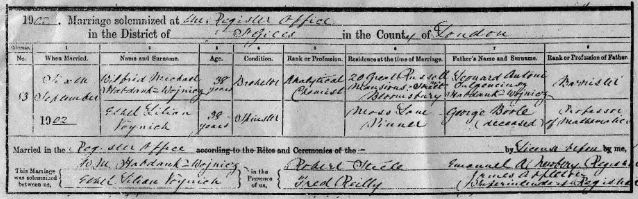 1902. Marriage solemnized at the Register Office
in the District of St Giles in the County of London
No. When Married. Name and Surname. Age. Condition. Rank or Profession. Residence at the time of Marriage. Father's Name and Surname. Rank or Profession of Father.
Wilfrid Michael Habdank-Wojnicz 38 years Bachelor Analytical Chemist 20 Great Russell Mansions Bloomsbury Leonard Habdank-Wojnicz
September 1902
Ethel Lilian Voynich 38 years Spinster Moss Lane Pinner George Boole (deceased) Professor of Mathematics
Married in the Register Office according to the Rites and Ceremonies of the by License before me,
This Marriage was solemnized between us, W. M. Habdank-Wojnicz in the Presence of us, Robert Steele Registrar
Ethel Lilian Voynich Fred Reilly James Superintendent Registrar